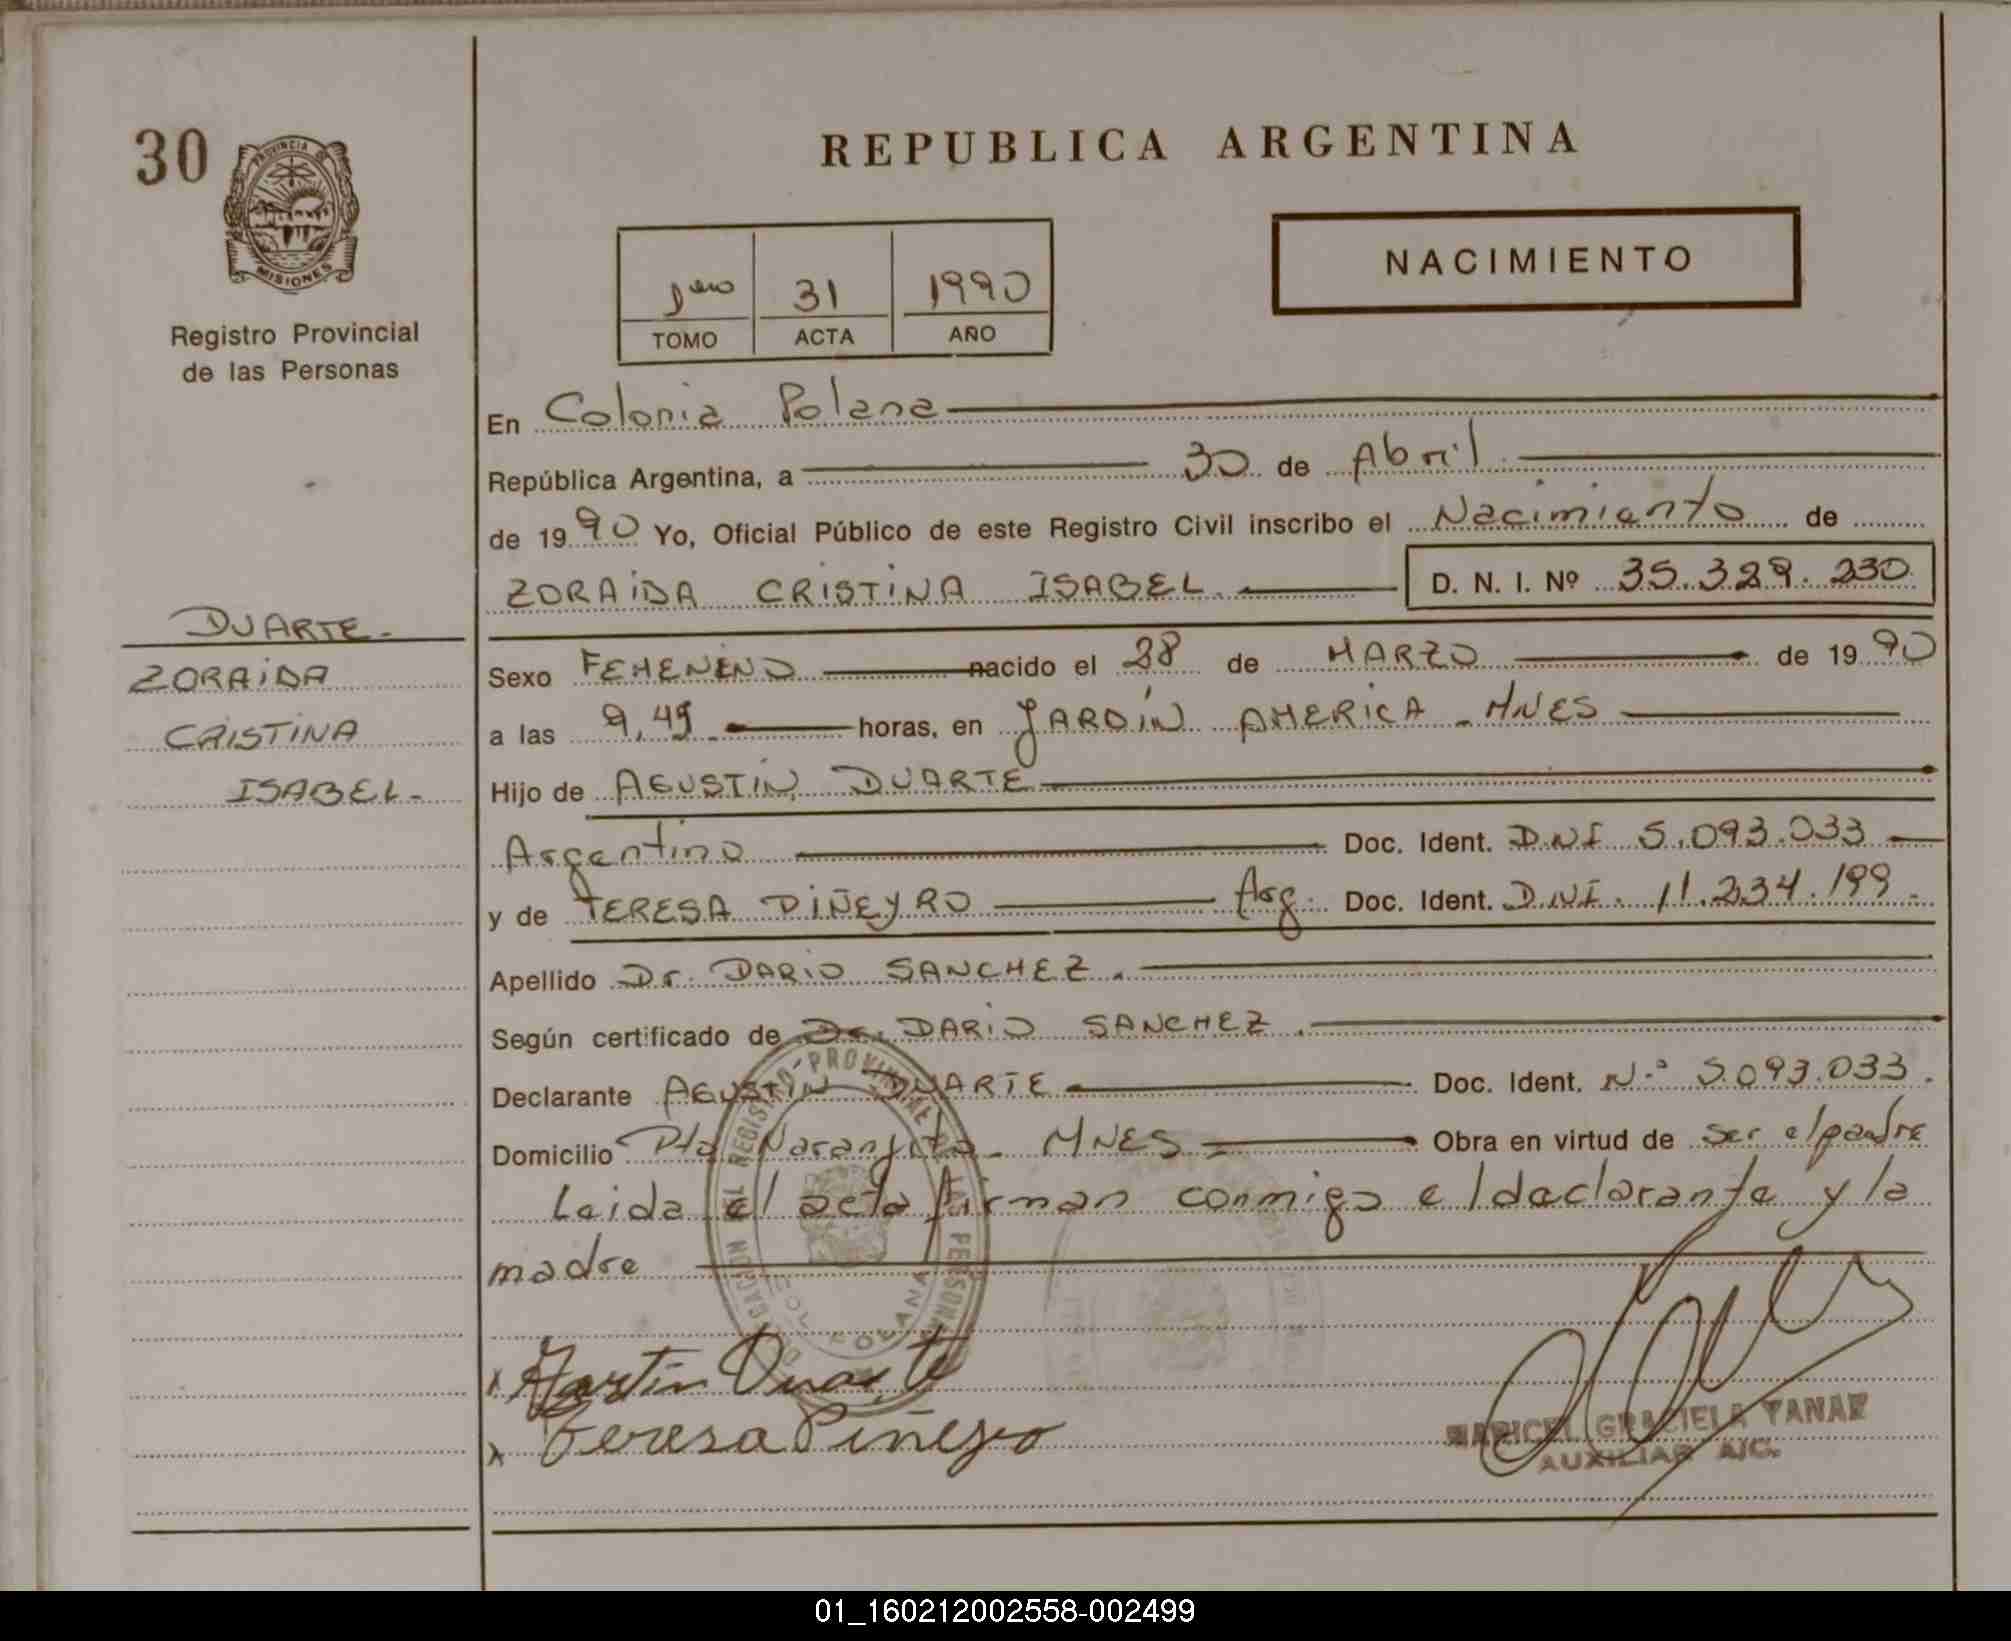 30
PROVINCIA DE
MISIONES
Registro Provincial
de las Personas
REPUBLICA ARGENTINA
NACIMIENTO
1ero 31 1990
TOMO ACTA AÑO
En Colonia Polana
República Argentina, a 30 de Abril
de 1990 Yo, Oficial Público de este Registro Civil inscribo el Nacimiento de
ZORAIDA CRISTINA ISABEL. D. N. I. Nº 35.329.230
DUARTE.
ZORAIDA
CRISTINA
ISABEL.
Sexo FEMENINO nacido el 28 de MARZO de 1990
a las 9,45 horas, en JARDÍN AMERICA - MNES
Hijo de AGUSTIN DUARTE
Argentino Doc. Ident. DNI 5.093.033
y de TERESA PIÑEYRO Arg. Doc. Ident. DNI. 11.234.199.
Apellido Dr. DARIO SANCHEZ.
Según certificado de Dr. DARIO SANCHEZ.
Declarante AGUSTIN DUARTE Doc. Ident. N.º 5.093.033.
Domicilio Pto Naranjito - MNES Obra en virtud de ser el padre
Leida el acta firman conmigo el declarante y la
madre
DELEGACION DEL REGISTRO PROVINCIAL DE LAS PERSONAS
POLANA
x Duarte
x Teresa Piñeyro
MARICEL GRACIELA YANAZ
AUXILIAR A/C.
01_160212002558-002499